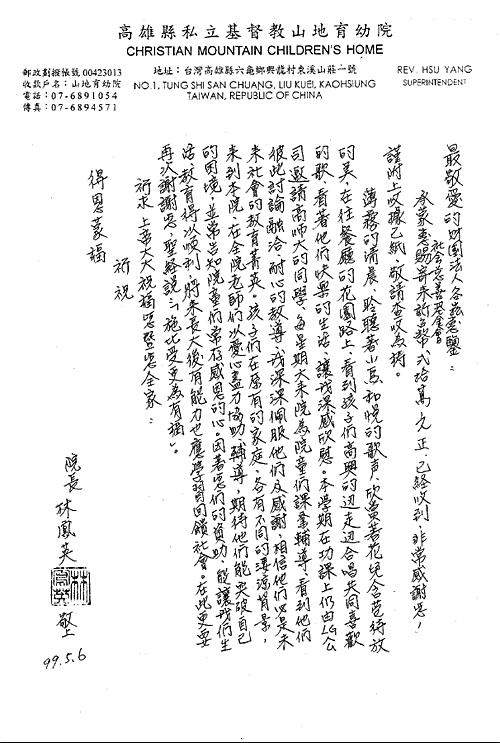 高雄縣私立基督教山地育幼院
CHRISTIAN MOUNTAIN CHILDREN'S HOME
郵政劃撥帳號 00423013
收款戶名：山地育幼院
電話：07-6891054
傳真：07-6894571
地址：台灣高雄縣六龜鄉興龍村東溪山莊一號
NO.1, TUNG SHI SAN CHUANG, LIU KUEI, KAOHSIUNG
TAIWAN, REPUBLIC OF CHINA
REV. HSU YANG
SUPERINTENDENT
最敬愛的財團法人 社會慈善基金會 鑒：
承蒙惠賜寄來新台幣 萬元正，已經收到，非常感謝您！
謹附上收據乙紙，敬請查收為禱。
薄霧的清晨，聆聽著小鳥和悅的歌声，欣賞著花兒含苞待放
的美，在往餐廳的花園路上，看到孩子們高興的边走边合唱共同喜歡
的歌，看著他們快樂的生活，讓我深感欣慰。本學期在功課上仍由LG公
司邀請高師大的同學，每星期六來院為院童們課業輔導，看到他們
彼此討論融洽、耐心的教導，我深深佩服他們及感謝，相信他們必是未
來社會的教育菁英。孩子們在原有的家庭，各有不同的淒涼背景，
來到本院，在全院老師們以愛心盡力協助、輔導，期待他們能突破自己
的困境，並常告知院童們常存感恩的心。因著您們的資助，能讓我們生
活、教育得以順利，將來長大後有能力也應學習回饋社會。在此更要
再次謝謝您，聖經說：「施比受更為有福」。
祈求上帝大大祝福您暨您全家：
祈祝
得恩蒙福
院長 林鳳英 敬上
99.5.6